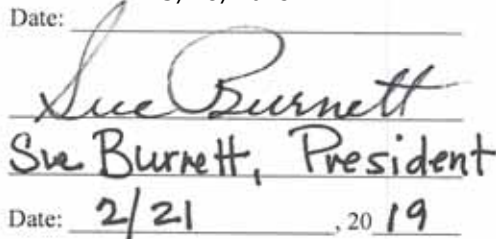 Date:
Sue Burnett
Sue Burnett, President
Date: 2/21, 20 19